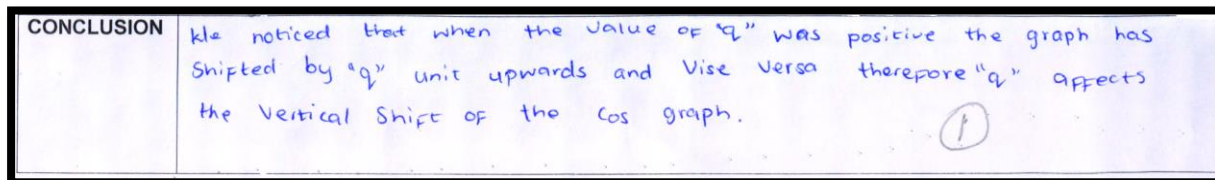 CONCLUSION
We noticed that when the value of "q" was positive the graph has
Shifted by "q" unit upwards and Vise Versa therefore "q" affects
the Vertical Shift of the Cos graph.
1